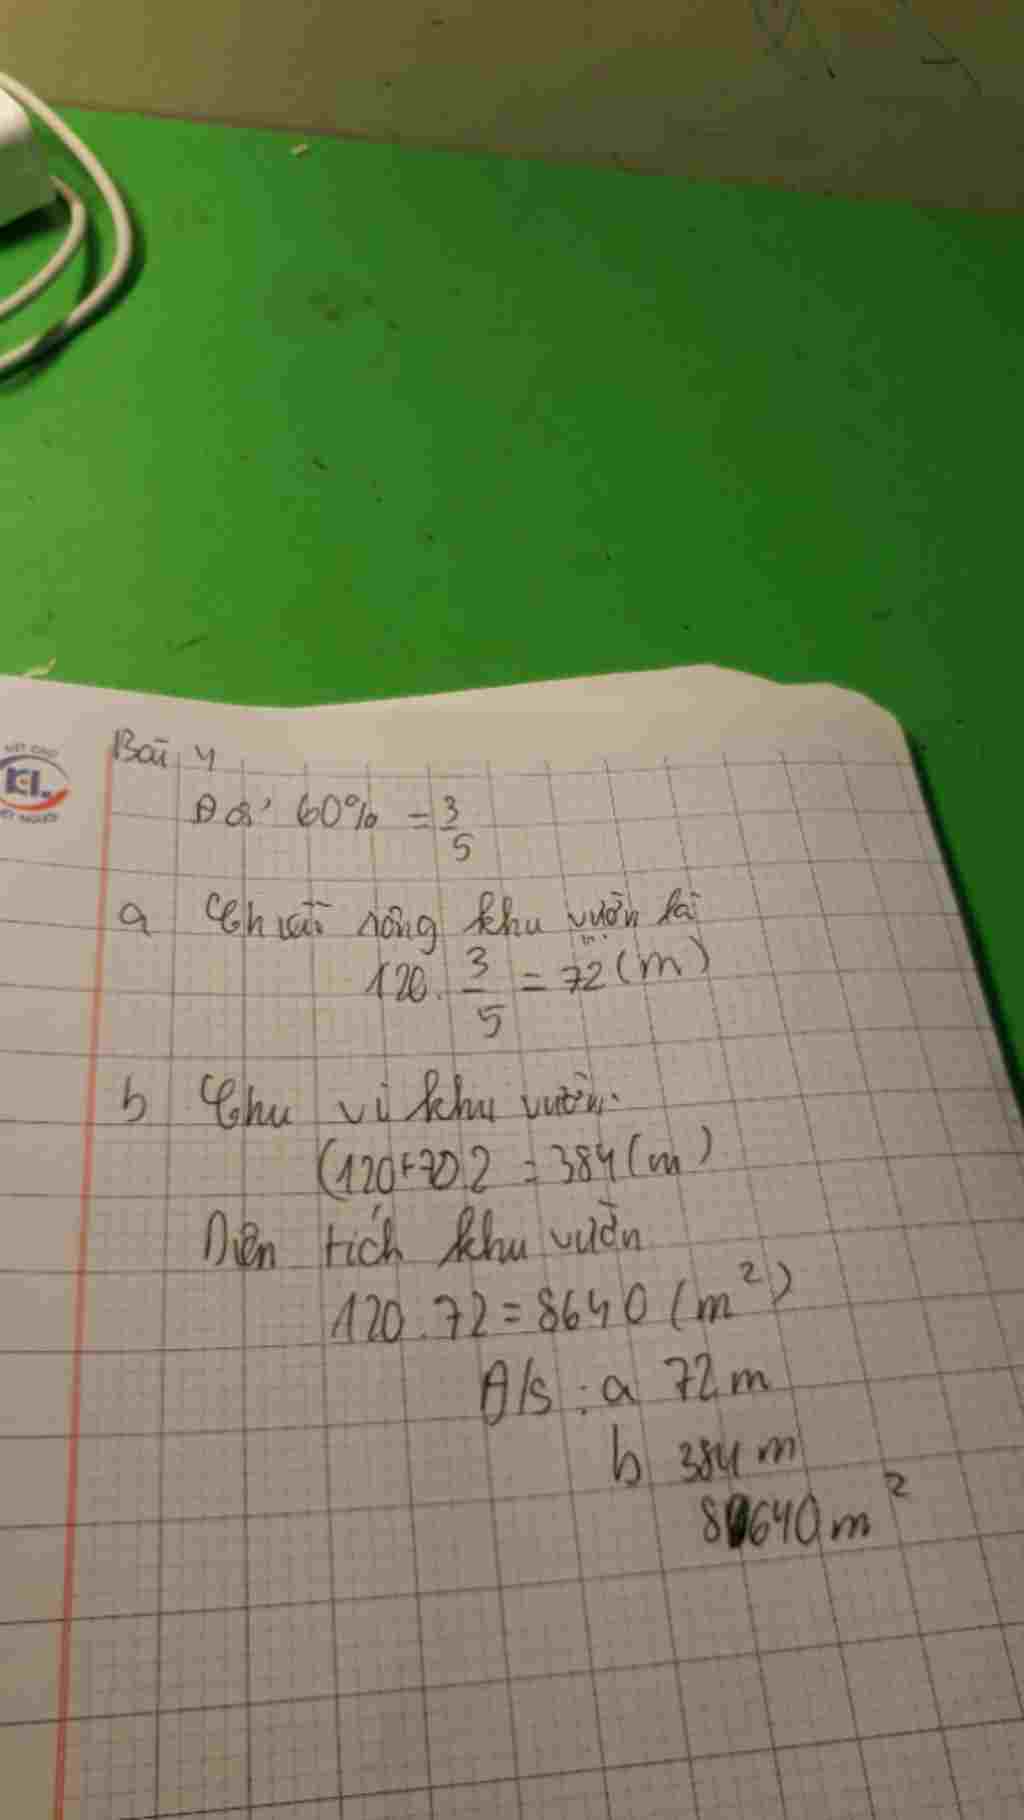 Bài 4
Đổi 60% = 3/5
a Chiều rộng khu vườn là
120 . 3/5 = 72 (m)
b Chu vi khu vườn
(120+72) 2 = 384 (m)
Diện tích khu vườn
120 . 72 = 8640 (m²)
Đ/S : a 72 m
b 384 m
8640 m²
KL